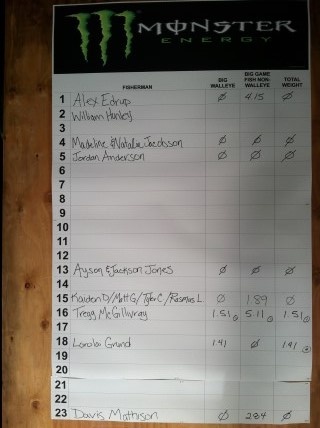 MONSTER
ENERGY
FISHERMAN BIG WALLEYE BIG GAME FISH NON-WALLEYE TOTAL WEIGHT
1 Alex Edrup Ø 4.15 Ø
2 William Hanley
3
4 Madeline & Natalie Jacobson Ø Ø Ø
5 Jordan Anderson Ø Ø Ø
6
7
8
9
10
11
12
13 Ayson & Jackson Jones Ø Ø Ø
14
15 Kaiden D/Matt G/Tyler C/Rasmus L Ø 1.89 Ø
16 Tregg McGillivray 1.51 5.11 1.51
17
18 Grund 1.41 Ø 1.41
19
20
21
22
23 Davis Mathison Ø 2.84 Ø